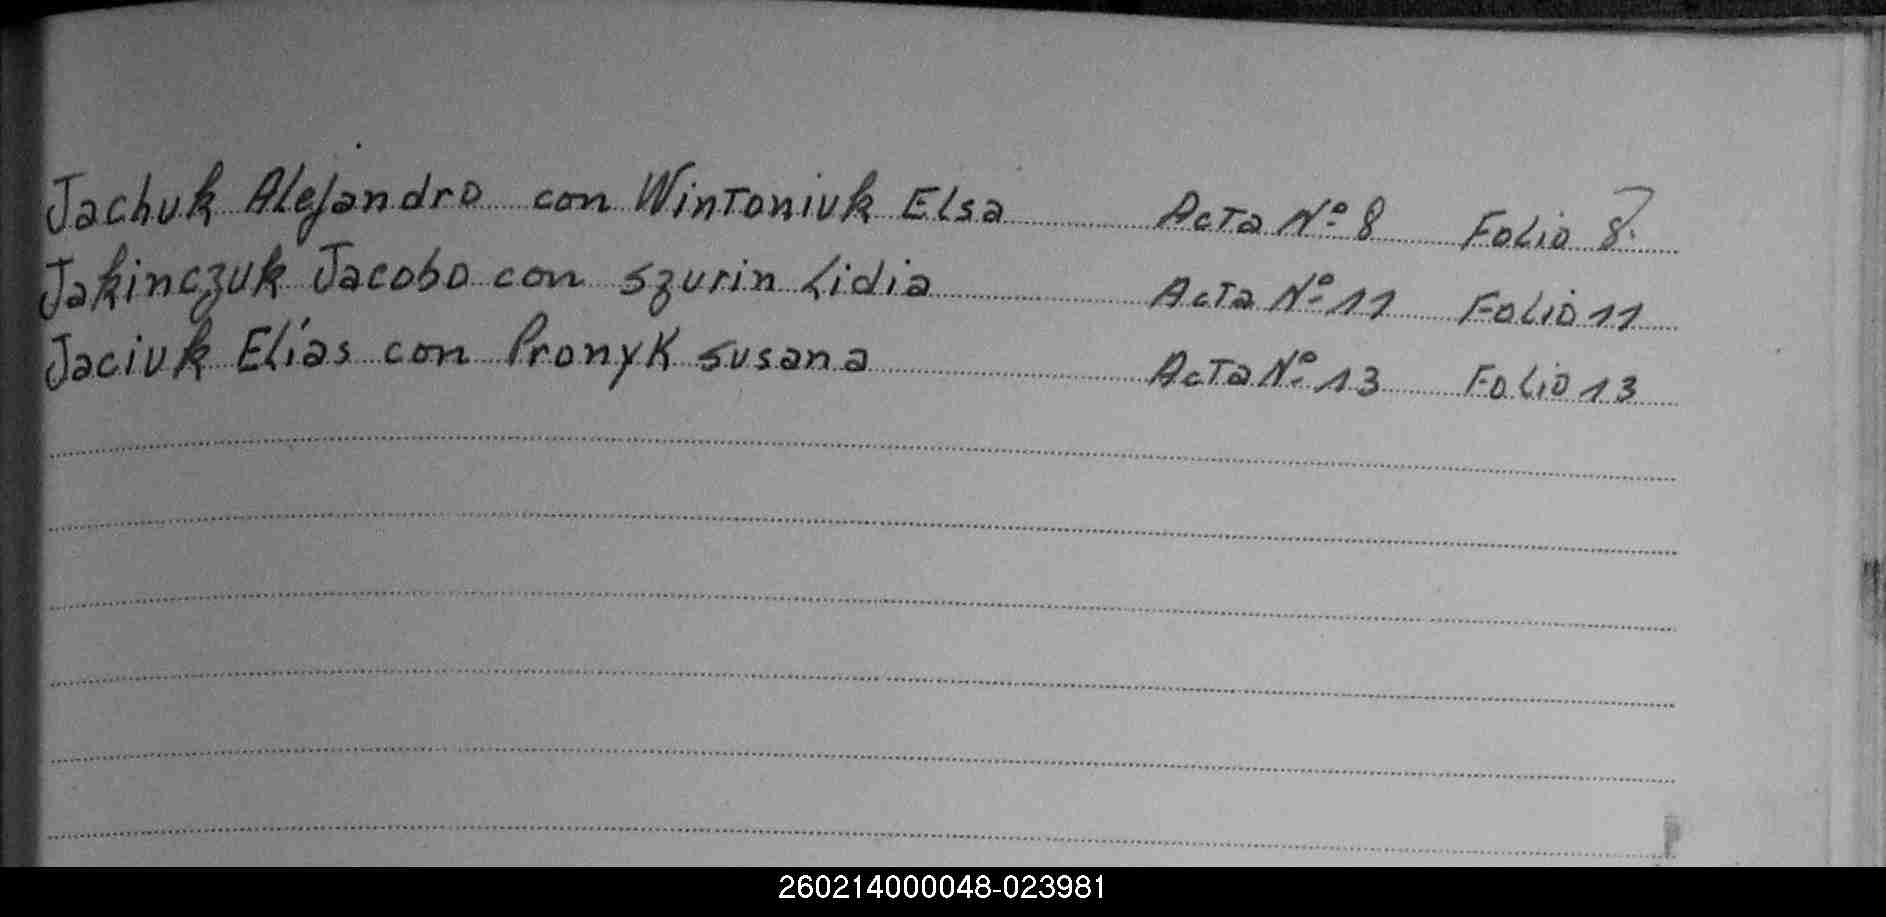 Jachuk Alejandro con Wintoniuk Elsa Acta Nº 8 Folio 8.
Jakinczuk Jacobo con Szurin Lidia Acta Nº 11 Folio 11
Jaciuk Elías con Pronyk Susana Acta Nº 13 Folio 13
260214000048-023981